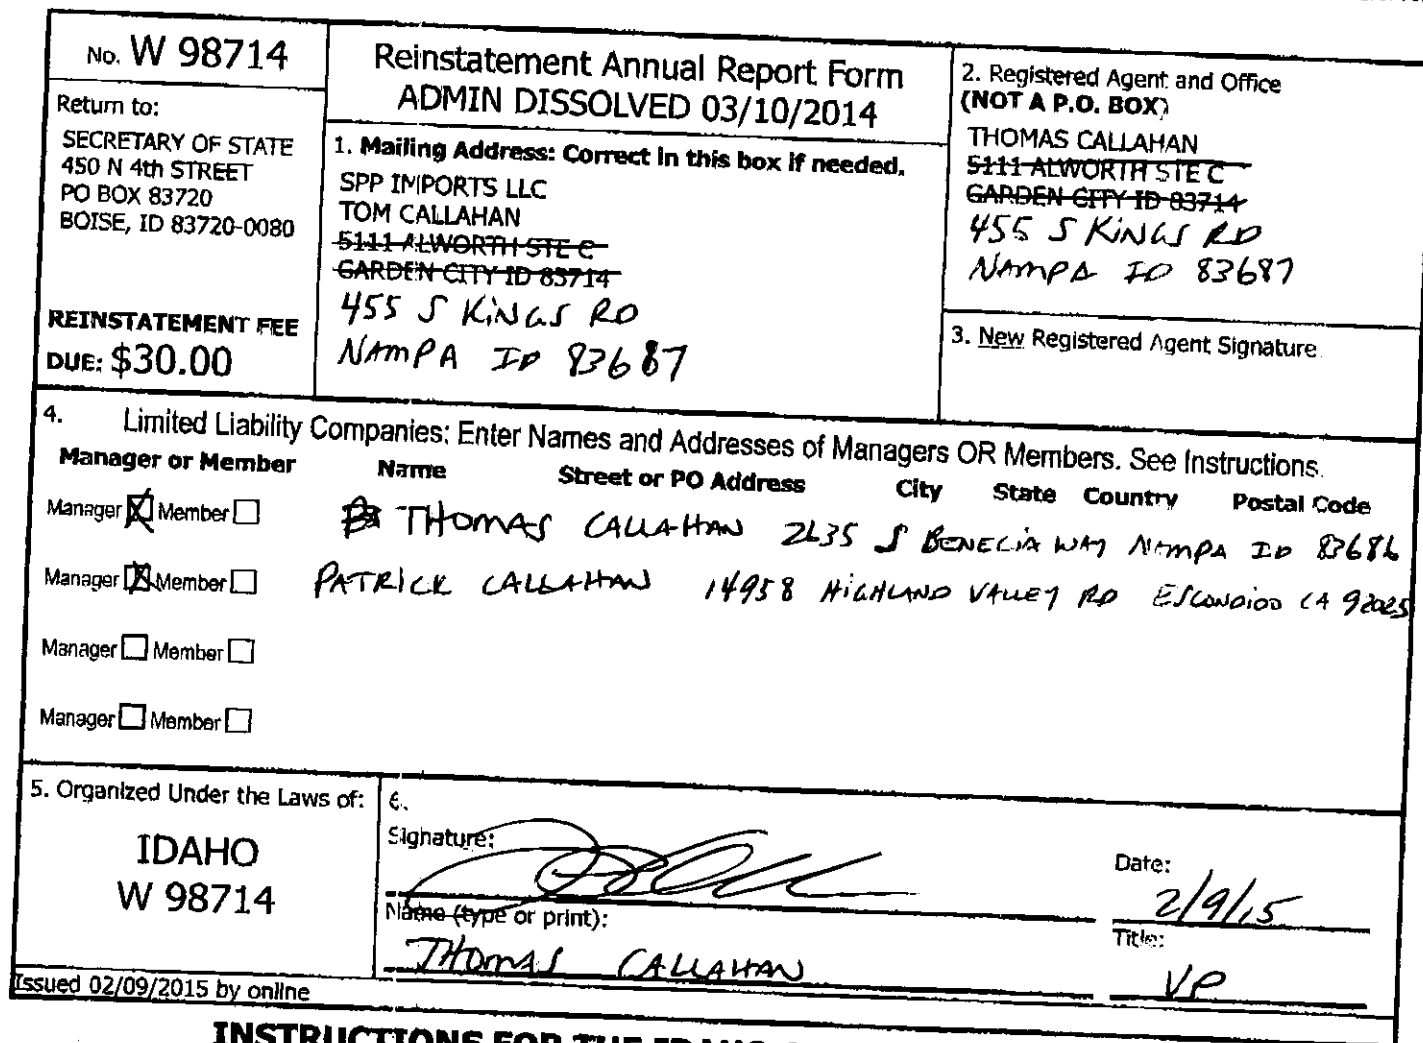 No. W 98714
Return to:
SECRETARY OF STATE
450 N 4th STREET
PO BOX 83720
BOISE, ID 83720-0080
REINSTATEMENT FEE
DUE: $30.00
Reinstatement Annual Report Form
ADMIN DISSOLVED 03/10/2014
1. Mailing Address: Correct in this box if needed.
SPP IMPORTS LLC
TOM CALLAHAN
5111 ALWORTH STE C
GARDEN CITY ID 83714
455 S KINGS RD
NAMPA ID 83687
2. Registered Agent and Office
(NOT A P.O. BOX)
THOMAS CALLAHAN
5111 ALWORTH STE C
GARDEN CITY ID 83714
455 S KINGS RD
NAMPA ID 83687
3. New Registered Agent Signature
4. Limited Liability Companies: Enter Names and Addresses of Managers OR Members. See Instructions.
Manager or Member Name Street or PO Address City State Country Postal Code
Manager Member THOMAS CALLAHAN 2635 S BENECIA WAY NAMPA ID 83686
Manager Member PATRICK CALLAHAN 14958 HIGHLAND VALLEY RD ESCONDIDO CA 92025
Manager Member
Manager Member
5. Organized Under the Laws of:
IDAHO
W 98714
6.
Signature:
Date:
2/9/15
Name (type or print):
THOMAS CALLAHAN
Title:
VP
Issued 02/09/2015 by online
INSTRUCTIONS FOR THE